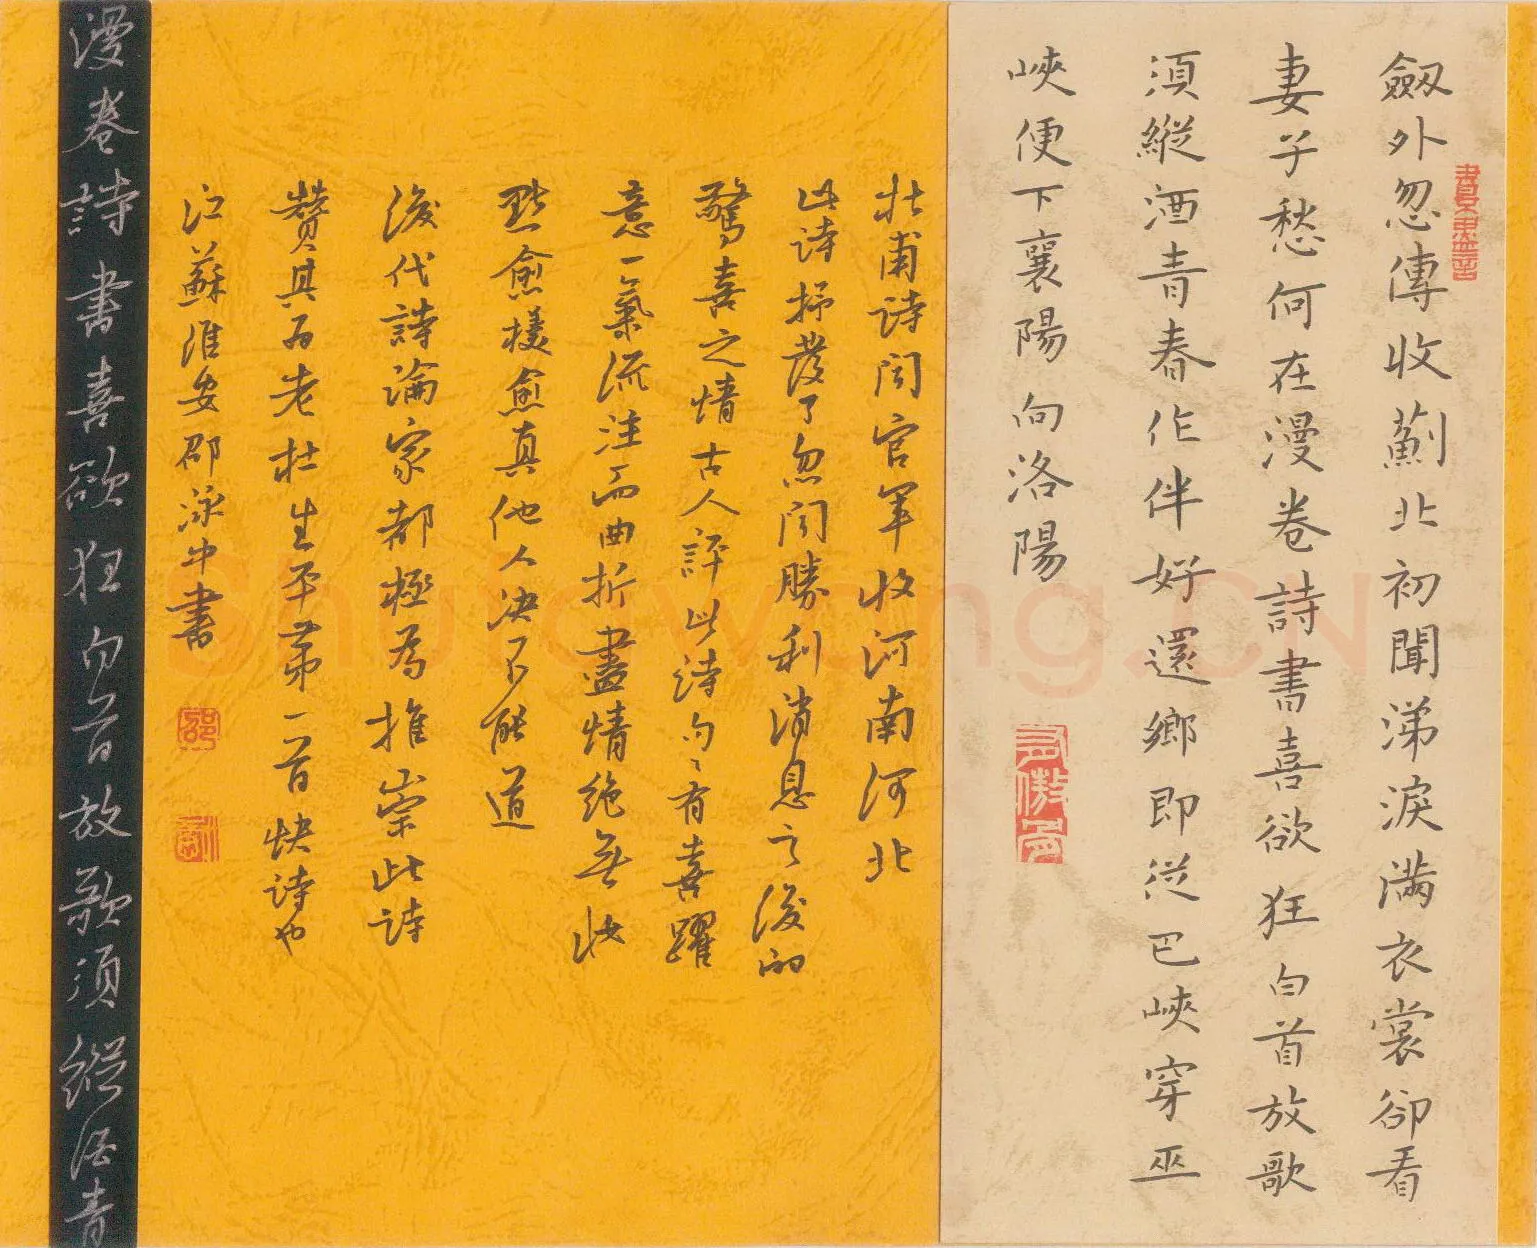 劔外忽傳收薊北初聞涕淚滿衣裳卻看
妻子愁何在漫卷詩書喜欲狂白首放歌
須縱酒青春作伴好還鄉即從巴峽穿巫
峽便下襄陽向洛陽
杜甫诗闻官军收河南河北
此诗抒发了忽闻勝利消息之後的
驚喜之情古人評此诗句、有喜躍
意一氣流注而曲折盡情絶無妆
點愈樸愈真他人决不能道
後代詩論家都極為推崇此詩
赞其为老杜生平第一首快詩也
江蘇淮安邵泳中書
漫卷詩書喜欲狂白首放歌須縱酒青
Shufawang.CN